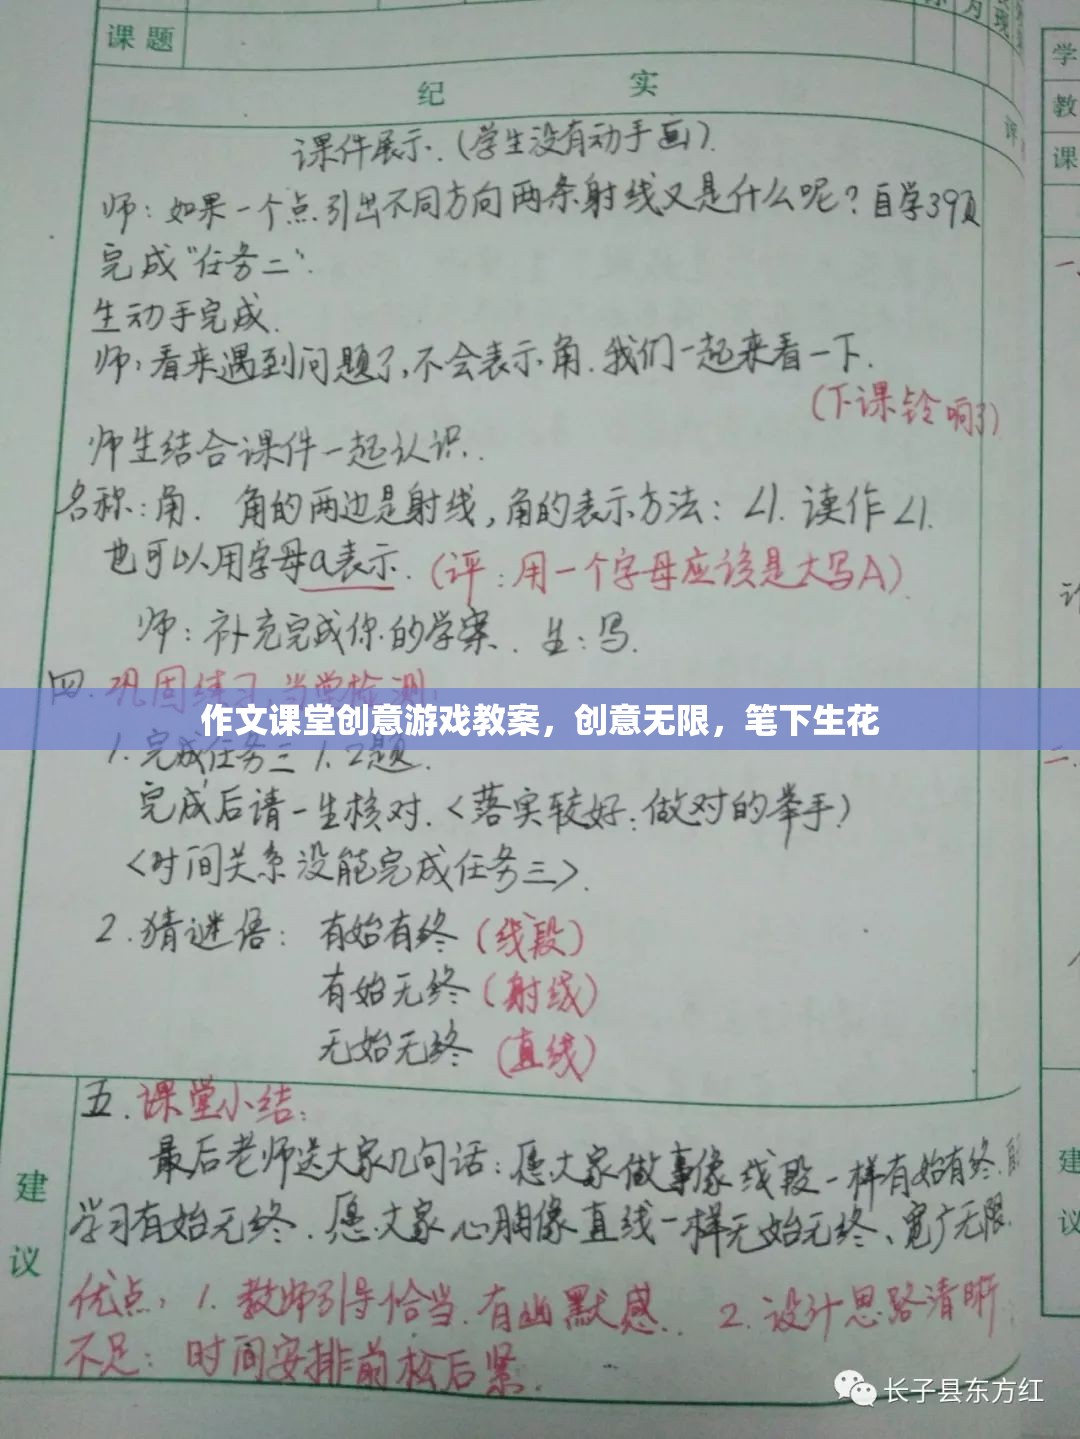 课题
纪 实
课件展示.(学生没有动手画).
师:如果一个点引出不同方向两条射线又是什么呢?自学39页
完成“任务二”.
生动手完成.
师:看来遇到问题了,不会表示角.我们一起来看一下.
(下课铃响了)
师生结合课件一起认识.
名称:角. 角的两边是射线,角的表示方法:∠1. 读作∠1.
也可以用字母a表示.(评:用一个字母应该是大写A)
师:补充完成你的学案. 生:写.
四.巩固练习,当堂检测:
作文课堂创意游戏教案,创意无限,笔下生花
1.完成任务三 1.2题.
完成后请一生核对.<落实较好:做对的举手)
<时间关系没能完成任务三>.
2.猜谜语: 有始有终(线段)
有始无终(射线)
无始无终(直线)
五.课堂小结:
最后老师送大家几句话:愿大家做事像线段一样有始有终.
学习有始无终.愿大家心胸像直线一样无始无终、宽广无限.
优点:1.教师引导恰当.有幽默感. 2.设计思路清晰
不足:时间安排前松后紧.
建
议
学
教
课
评
一.
二.
建
议
长子县东方红